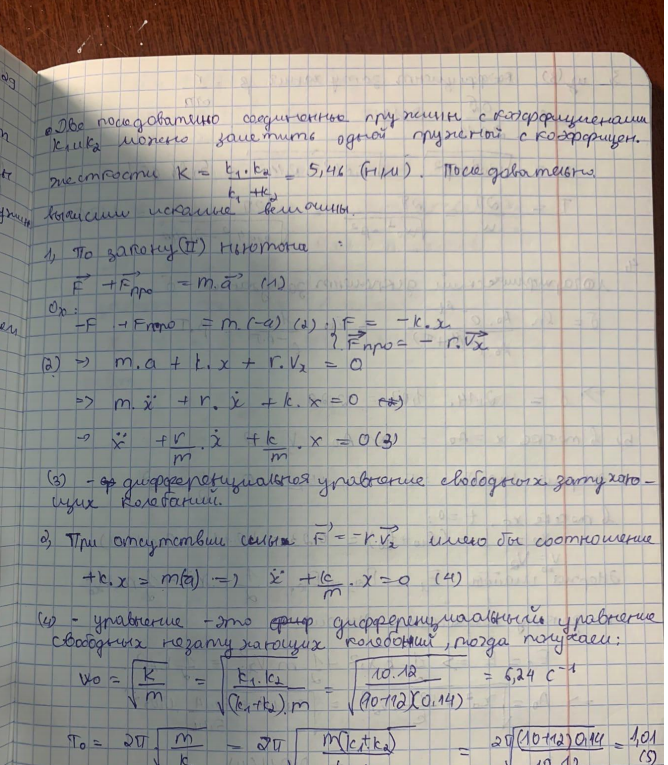 Две последователно соединенные пружин с коэффициенами
k₁ и k₂ можно заметить одной пруженый с коэффицен.
жесткости K = k₁·k₂ / k₁+k₂ = 5,46 (н/м). Последователно.
вычислим искамие величины.
1, По закону (II) ньютона :
F⃗ + F⃗про = m.a⃗ (1)
Ox:
-F + Fпро = m(-a) (2) : F = -k.x
F⃗про = - r.V⃗x
(2) => m.a + k.x + r.Vx = 0
=> m.ẍ + r.ẋ + k.x = 0
-> ẍ + r/m . ẋ + k/m . x = 0 (3)
(3) - дифференциальноя уравнение свободных затухаю-
щих колебаний.
2, При отсутствии силы F⃗ = -r.V⃗ имело бы соотношение
+k.x = m(a) => ẍ + k/m . x = 0 (4)
(4) - уравнение - это дифференциаальный уравнение
свободных незатухающих колебоний, тогда получаем:
w₀ = √(k/m) = √(k₁.k₂ / (k₁+k₂).m) = √(10.12 / (10+12)(0.14)) = 6,24 с⁻¹
T₀ = 2π√(m/k) = 2π√(m(k₁+k₂) = 2π√((10+12)0,14 / 10.12 = 1,01 (s)